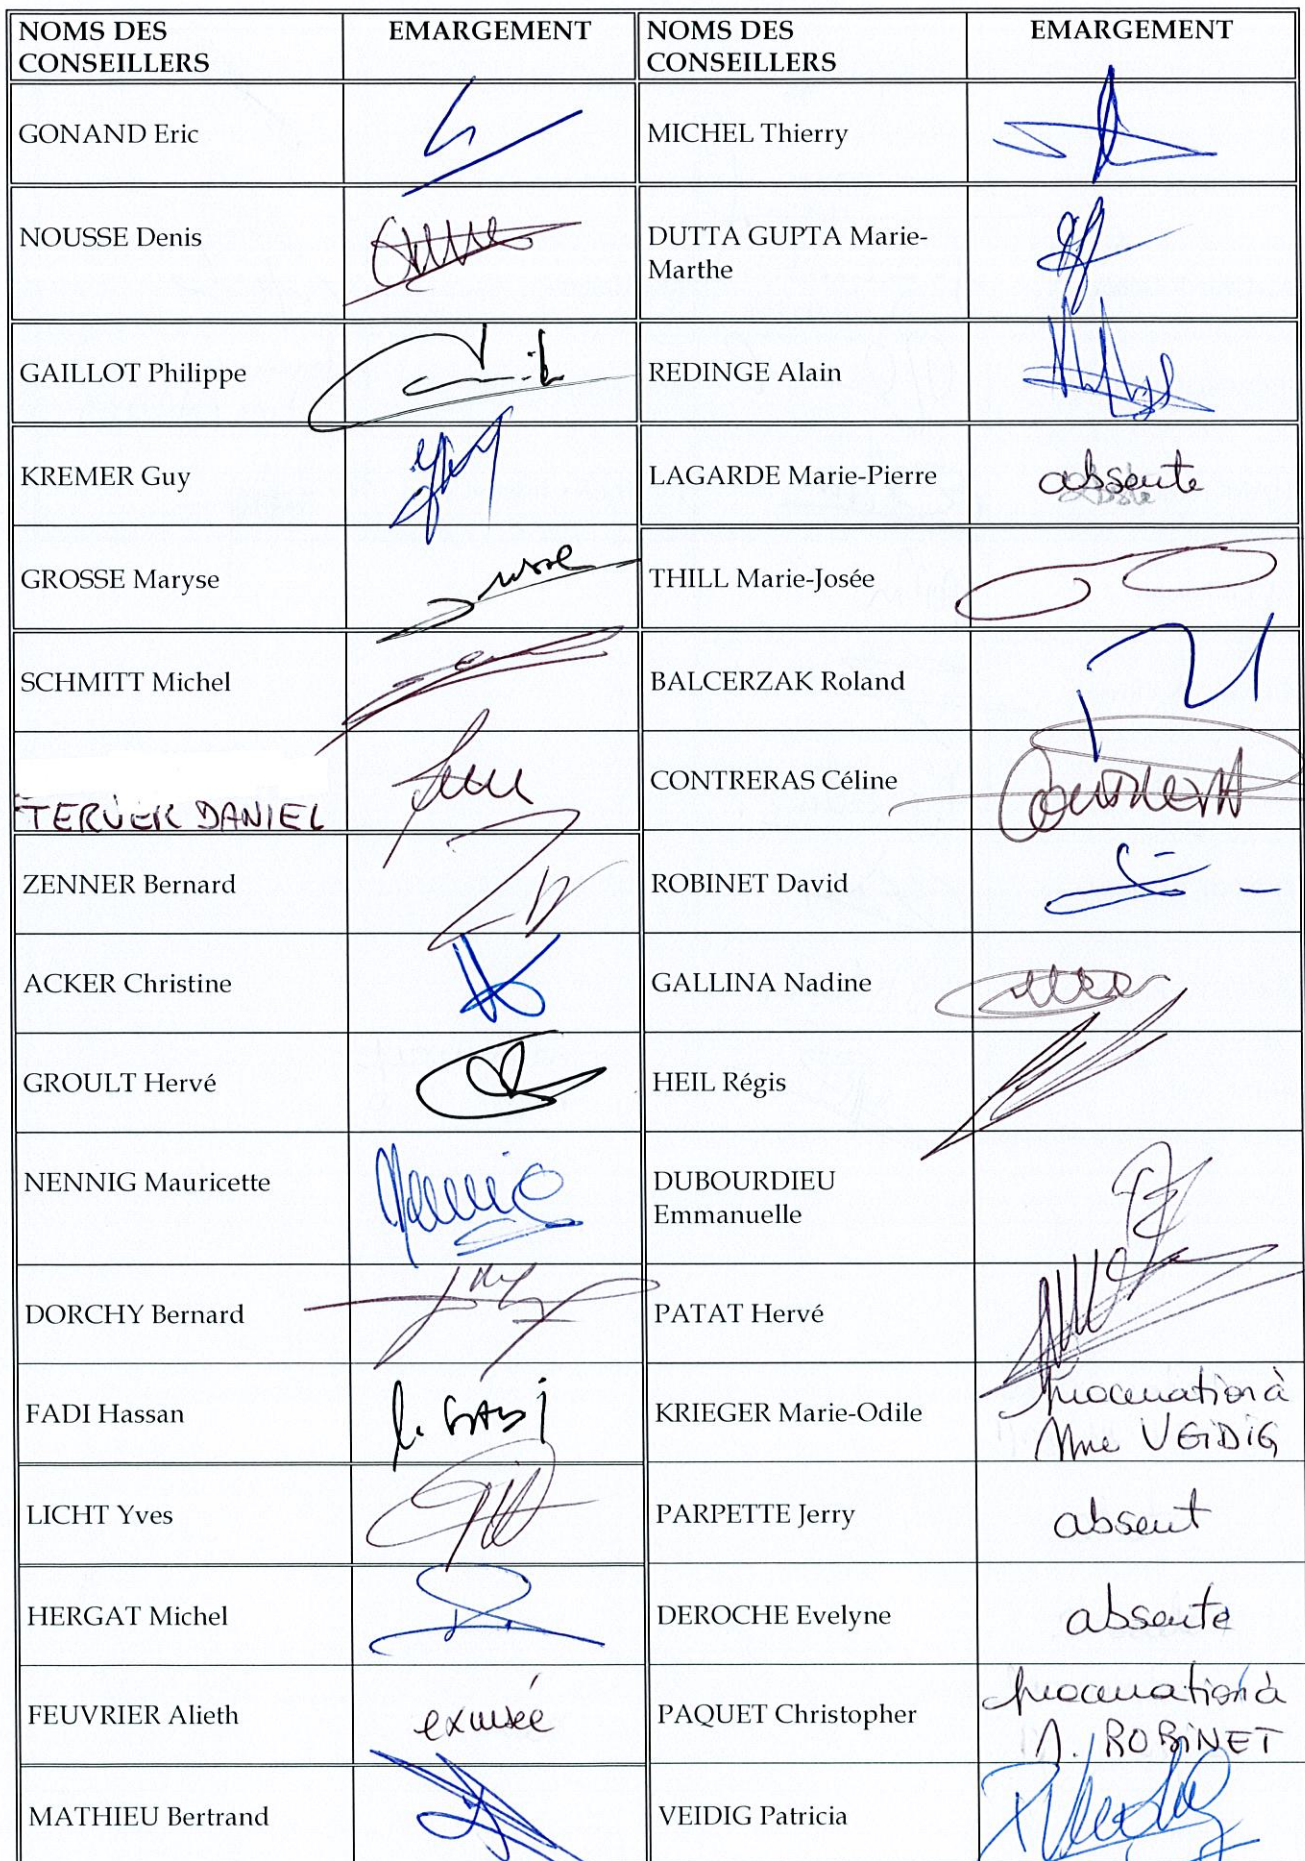 NOMS DES EMARGEMENT NOMS DES EMARGEMENT
CONSEILLERS CONSEILLERS
GONAND Eric MICHEL Thierry
NOUSSE Denis DUTTA GUPTA Marie-
Marthe
GAILLOT Philippe REDINGE Alain
KREMER Guy LAGARDE Marie-Pierre absente
GROSSE Maryse THILL Marie-Josée
SCHMITT Michel BALCERZAK Roland
TERVER DANIEL CONTRERAS Céline
ZENNER Bernard ROBINET David
ACKER Christine GALLINA Nadine
GROULT Hervé HEIL Régis
NENNIG Mauricette DUBOURDIEU
Emmanuelle
DORCHY Bernard PATAT Hervé
FADI Hassan KRIEGER Marie-Odile procuration à
Mme VEIDIG
LICHT Yves PARPETTE Jerry absent
HERGAT Michel DEROCHE Evelyne absente
FEUVRIER Alieth excusée PAQUET Christopher procuration à
ROBINET
MATHIEU Bertrand VEIDIG Patricia